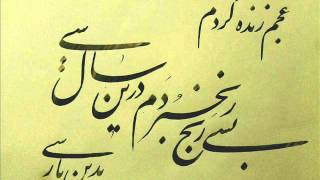 بسی رنج بردم درین سال سی
عجم زنده کردم
بدین پارسی